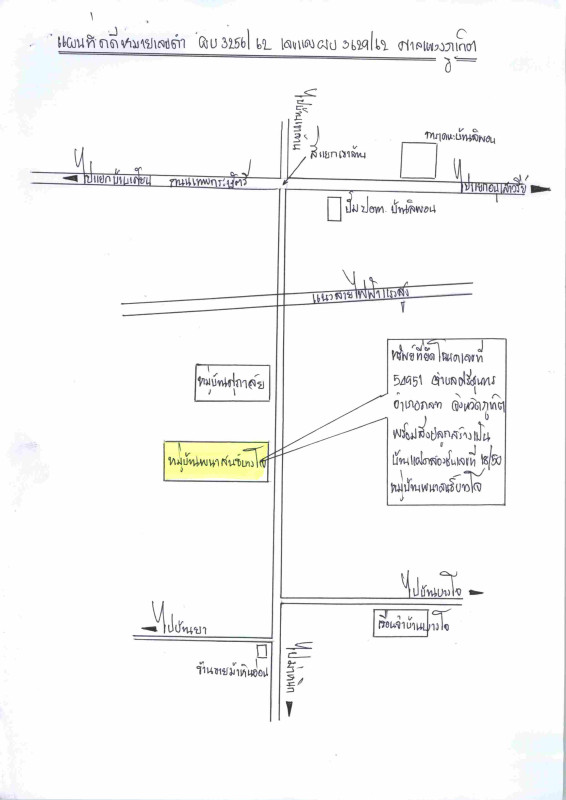 แผนที่คดีหมายเลขดำ ผบ 3256/62 เลขแดง ผบ 3629/62 ศาลแพ่งภูเก็ต
ไปบ้านเหรียง
สี่แยก
ตลาดนัดบ้านลิพอน
ไปแยกบ้านเคียน
ถนนเทพกระษัตรี
ไปแยกอนุสาวรีย์
ปั๊ม ปตท. บ้านลิพอน
แนวสายไฟฟ้าแรงสูง
หมู่บ้านศุภาลัย
ทรัพย์ที่ยึด โฉนดเลขที่
50951 ตำบลศรีสุนทร
อำเภอถลาง จังหวัดภูเก็ต
พร้อมสิ่งปลูกสร้างเป็น
บ้านแฝดสองชั้นเลขที่ 18/50
หมู่บ้านพนาสนธิ์บางโจ
หมู่บ้านพนาสนธิ์บางโจ
ไปบ้านบางโจ
เรือนจำบ้านบางโจ
ไปบ้านยา
ร้านขายม้าหินอ่อน